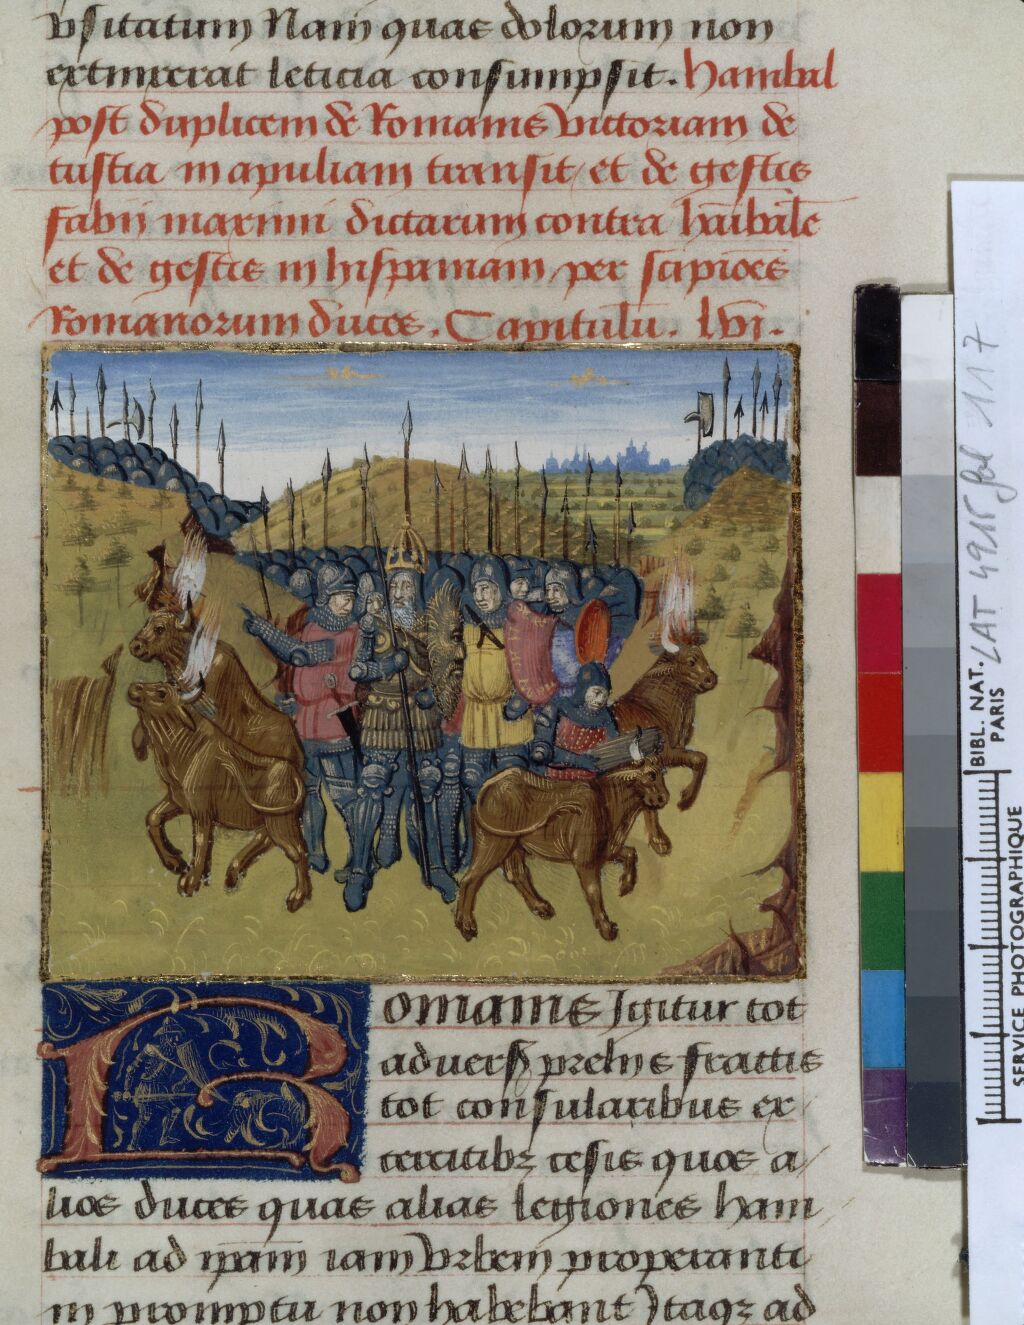 vsitatum Nam quae dolorum non
extinxerat leticia consumpsit. Hanibal
post duplicem de Romanis victoriam de
tuscia in apuliam transit et de gestis
fabii maximi dictatarum contra hānibalē
et de gestis in hispaniam per scipiōes
Romanorum duces. Capitulū. lvi.
Romanis Igitur tot
adversꝭ preliis fractis
tot consularibus ex
ercitibꝫ cesis quos a
lios duces quas alias legiones hani
bali ad ip̄am iam vrbem properanti
in promptu non habebant Itaqꝫ ad
LAT 4915 fol 117
BIBL. NAT.
PARIS
SERVICE PHOTOGRAPHIQUE